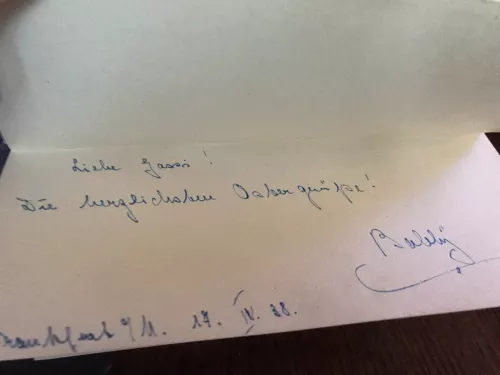 Liebe Gassi!
Die herzlichsten Ostergrüße!
Bubby
Frankfurt a/M. 17. IV. 38.